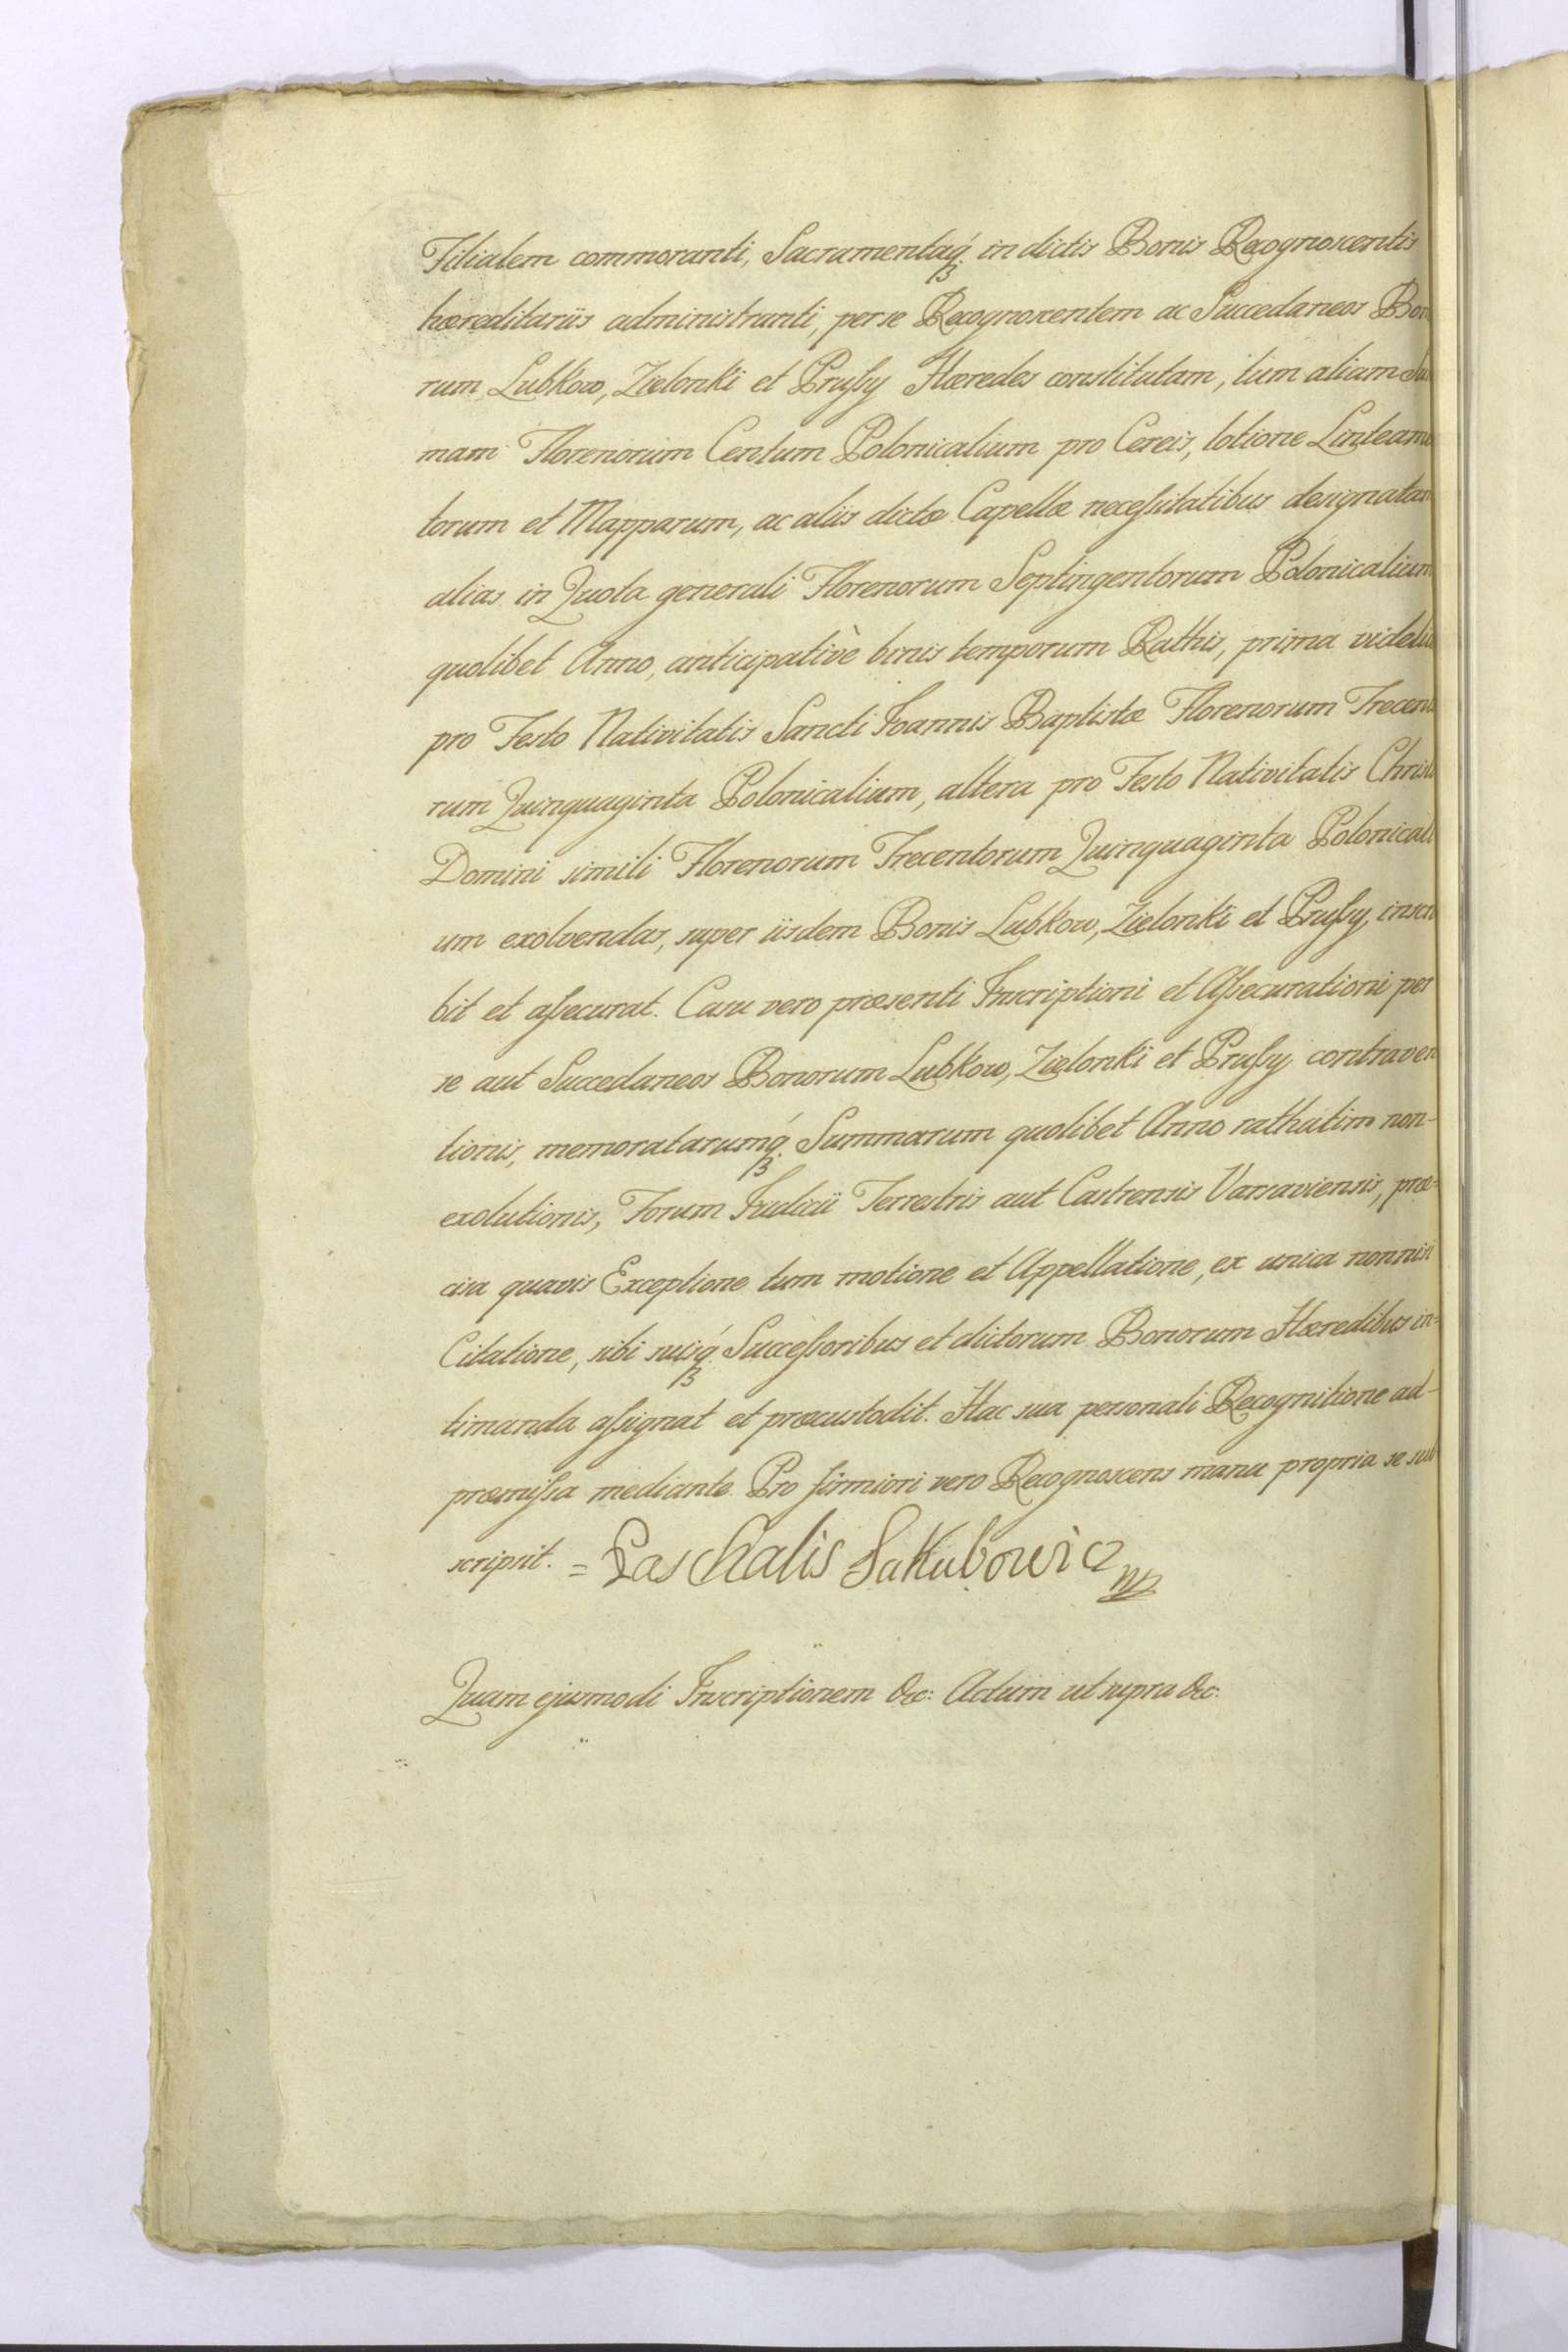 Filialem commoranti, Sacramentaq́ꝫ in dictis Bonis Recognoscentis
hæreditariis administranti, per se Recognoscentem ac Succedaneos Bon
rum Lubkow, Zielonki et Pruſsy Hæredes constitutam, tum aliam Su
mam Florenorum Centum Polonicalium pro Cereis, lotione Linteam
torum et Mapparum, ac aliis dictæ Capellæ neceſsitatibus designatam
alias in Quota generali Florenorum Septingentorum Polonicalium
quolibet Anno, anticipativè binis temporum Rathis, prima videlic
pro Festo Nativitatis Sancti Ioannis Baptistæ Florenorum Trecent
rum Quinquaginta Polonicalium, altera pro Festo Nativitatis Christi
Domini simili Florenorum Trecentorum Quinquaginta Polonicali
um exolvendas, super iisdem Bonis Lubkow, Zielonki et Pruſsy, inscri
bit et aſsecurat. Casu vero præsenti Inscriptioni et Aſsecurationi per
se aut Succedaneos Bonorum Lubkow, Zielonki et Pruſsy contraven
tionis, memoratarumq́ꝫ Summarum quolibet Anno rathatim non-
exolutionis, Forum Iudicii Terrestris aut Castrensis Varsaviensis, præ=
cisa quavis Exceptione tum motione et Appellatione, ex unica nonnisi
Citatione, sibi suisq́ꝫ Succeſsoribus et dictorum Bonorum Hæredibus in=
timanda aſsignat et præcustodit. Hac sua personali Recognitione ad-
præmiſsa mediante. Pro firmiori vero Recognoscens manu propria se sub
scripsit. = Paschalis Jakubowicz mp
Quam ejusmodi Inscriptionem &c: Actum ut supra &c: